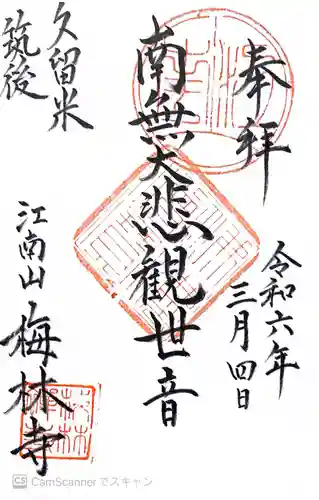 奉拝
令和六年
三月四日
南無大悲観世音
久留米
筑後
江南山
梅林寺
CS CamScanner でスキャン